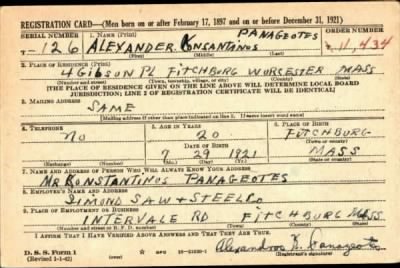 REGISTRATION CARD—(Men born on or after February 17, 1897 and on or before December 31, 1921)
SERIAL NUMBER 1. NAME (Print) ORDER NUMBER
PANAGEOTES
T-126 ALEXANDER KONSANTANOS 11,434
(First) (Middle) (Last)
2. PLACE OF RESIDENCE (Print)
4 GIBSON PL FITCHBURG WORCESTER MASS
(Number and street) (Town, township, village, or city) (County) (State)
[THE PLACE OF RESIDENCE GIVEN ON THE LINE ABOVE WILL DETERMINE LOCAL BOARD
JURISDICTION; LINE 2 OF REGISTRATION CERTIFICATE WILL BE IDENTICAL]
3. MAILING ADDRESS
SAME
[Mailing address if other than place indicated on line 2. If same insert word same]
4. TELEPHONE 5. AGE IN YEARS 6. PLACE OF BIRTH
NO 20 FITCHBURG
DATE OF BIRTH (Town or county)
7 29 1921 MASS
(Exchange) (Number) (Mo.) (Day) (Yr.) (State or country)
7. NAME AND ADDRESS OF PERSON WHO WILL ALWAYS KNOW YOUR ADDRESS
MR KONSTANTINOS PANAGEOTES
8. EMPLOYER'S NAME AND ADDRESS
SIMOND SAW & STEEL CO.
9. PLACE OF EMPLOYMENT OR BUSINESS
INTERVALE RD FITCHBURG MASS
(Number and street or R. F. D. number) (Town) (County) (State)
I AFFIRM THAT I HAVE VERIFIED ABOVE ANSWERS AND THAT THEY ARE TRUE.
D. S. S. Form 1
(Revised 1-1-42) GPO Alexandros K. Panageotes
(Registrant's signature)